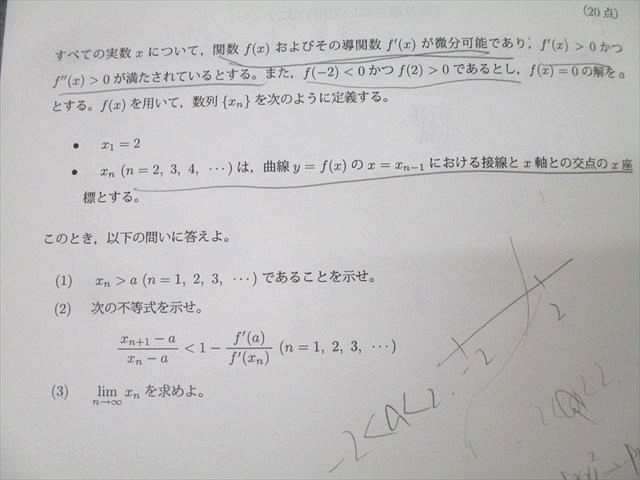 (20点)
すべての実数 x について，関数 f(x) およびその導関数 f′(x) が微分可能であり，f′(x) > 0 かつ
f″(x) > 0 が満たされているとする。また，f(−2) < 0 かつ f(2) > 0 であるとし，f(x) = 0 の解を a
とする。f(x) を用いて，数列 {xn} を次のように定義する。
• x1 = 2
• xn (n = 2, 3, 4, ⋯) は，曲線 y = f(x) の x = xn−1 における接線と x 軸との交点の x 座
標とする。
このとき，以下の問いに答えよ。
(1) xn > a (n = 1, 2, 3, ⋯) であることを示せ。
(2) 次の不等式を示せ。
(xn+1 − a)/(xn − a) < 1 − f′(a)/f′(xn) (n = 1, 2, 3, ⋯)
(3) lim n→∞ xn を求めよ。
2
−2
−2<a<2.